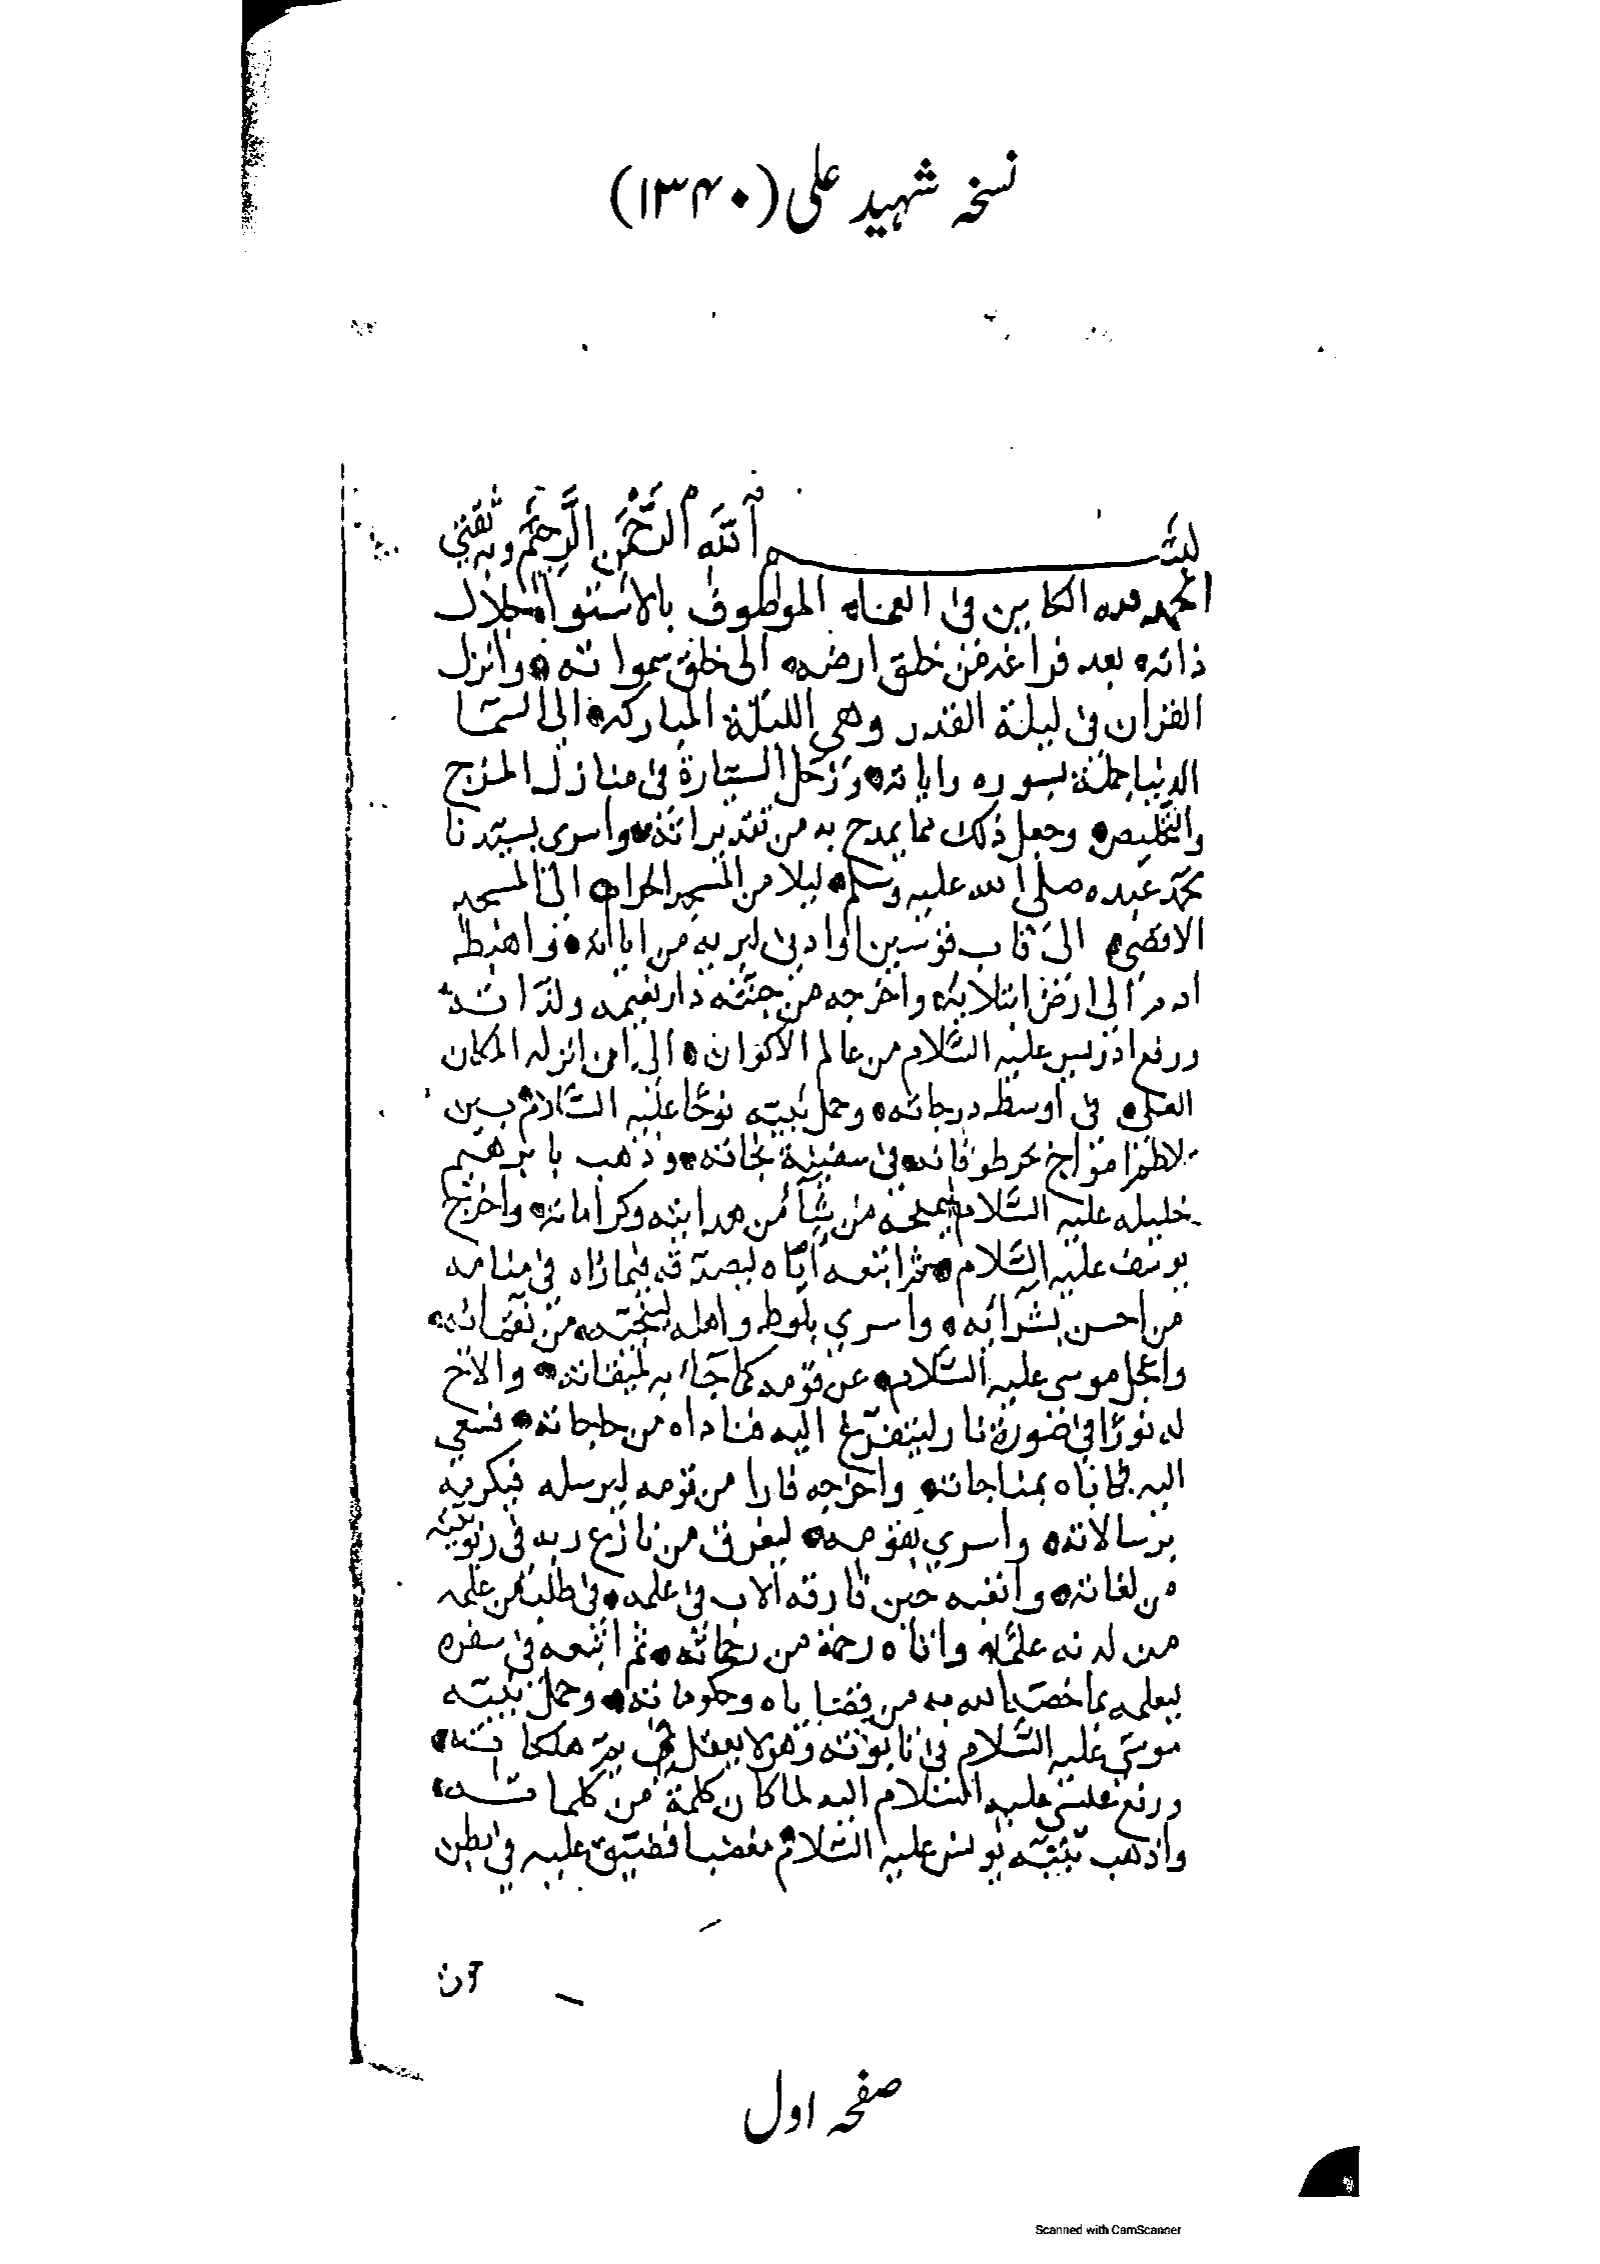 نسخہ شہید علی (۱۳۴۰)
بسم الله الرحمن الرحيم وبه ثقتي
الحمد لله الكاين في العماء الموصوف بالاستوا لجلال
ذاته بعد فراغه من خلق ارضه الى خلق سمواته وانزل
القران في ليلة القدر وهي الليلة المباركه الى السما
الدنيا جملة بسوره واياته ورحل السيارة في منازل المزج
والتخليص وجعل ذلك مما يمدح به من تقديراته واسرى بسيدنا
محمد عبده صلى الله عليه وسلم ليلا من المسجد الحرام الى المسجد
الاقصى الى قاب قوسين او ادنى ليريه من اياته واهبط
ادم الى ارض ابتلايه واخرجه من جنته دار نعيمه ولذاته
ورفع ادريس عليه السلام من عالم الاكوان الى ان انزله المكان
العلى في اوسط درجاته وحمل نبيه نوحا عليه السلام بين
تلاطم امواج بحر طوفانه في سفينة نجاته وذهب بابرهيم
خليله عليه السلام ليمنحه من شاء من هدايته وكراماته واخرج
يوسف عليه السلام ثم اتبعه اباه ليصدقه فيما راه في منامه
من احسن بشراته واسري بلوط واهله لينجيه من نقماته
واعجل موسى عليه السلام عن قومه كما جاء به لميقاته والاح
له نورا في صورة نار ليتفرغ اليه فناداه من حاجاته فسعي
اليه مناجاته واخرجه فارا من قومه ليرسله فيكرمه
برسالاته واسري بقومه ليغرق من نازع ربه في ربوبيته
من لغاته واتعبه حين فارقه الاب في علمه في طلب من علمه
من لدنه علما واتاه رحمة من رحماته ثم اتبعه في سفره
ليعلمه بما خصه الله به من قضاياه وحكوماته وحمل نبيه
موسى عليه السلام في تابوته وهو لا يعقل في يم هلكاته
ورفع عيسى عليه السلام اليه لما كان كلمة من كلماته
واذهب نبيه يونس عليه السلام مغضبا فضيق عليه في بطن
صفحہ اول
Scanned with CamScanner